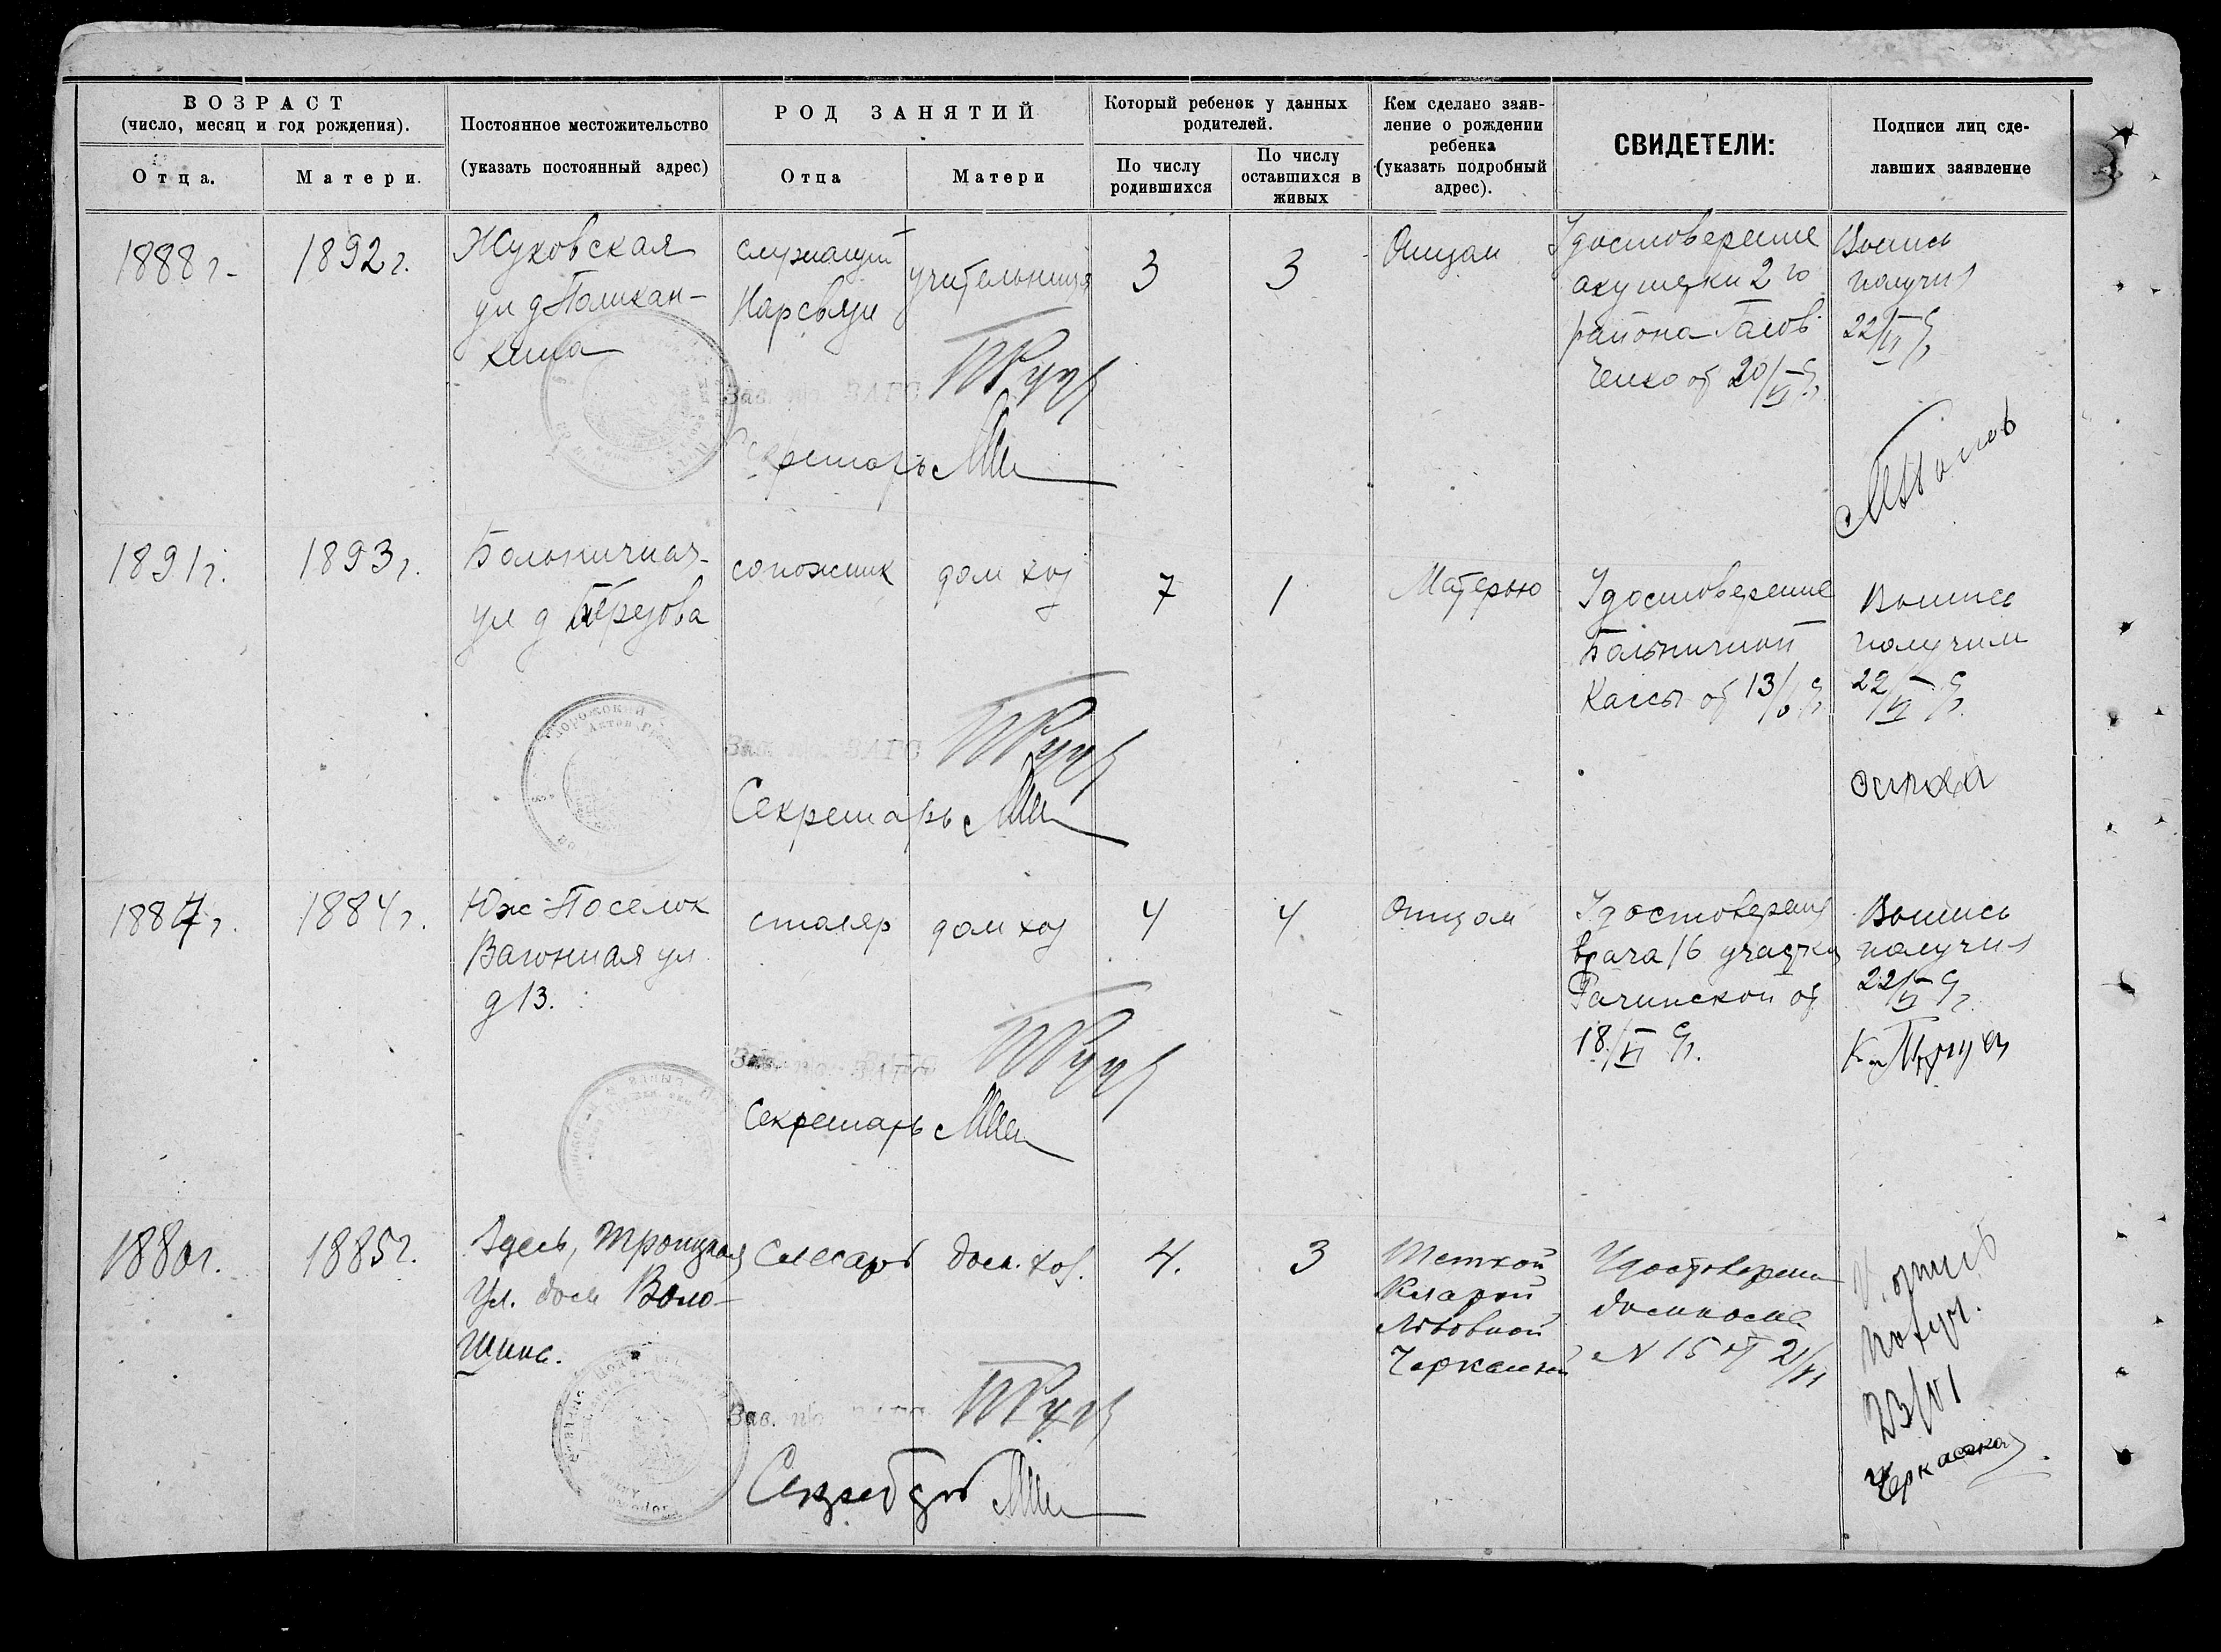 ВОЗРАСТ
(число, месяц и год рождения).
Отца.
Матери.
Постоянное местожительство
(указать постоянный адрес)
РОД ЗАНЯТИЙ
Отца
Матери
Который ребенок у данных
родителей.
По числу
родившихся
По числу
оставшихся в
живых
Кем сделано заяв-
ление о рождении
ребенка
(указать подробный
адрес).
СВИДЕТЕЛИ:
Подписи лиц сде-
лавших заявление
1888 г.
1892 г.
Жуковская
ул д
кина
служащий
Нарсвязи
учительница
3
3
Отцом
Удостоверение
акушерки 2го
района
от 20/VI
Выпись
получил
22/VI
Зав. п/о ЗАГС
Секретарь
1891 г.
1893 г.
Больничная
ул д Березова
сапожник
дом хоз
7
1
Матерью
Удостоверение
Больничной
Кассы от 13/
Выпись
получила
22/VI
Зав. п/о ЗАГС
Секретарь
1887 г.
1884 г.
Юж Поселок
Вагонная ул
д 13.
столяр
дом хоз
4
4
Отцом
Удостоверение
врача 16 участка
от
18/VI
Выпись
получил
22/VI
Зав. п/о ЗАГС
Секретарь
1880 г.
1885 г.
Здесь, Троицкая
Ул. дом Воло-
шина.
Слесарь
дом. хоз.
4.
3
Теткой
Кларой
Львовной
Черкасской
Удостоверение
домкома
N 15 от 21/VI
Выпись
получ.
23/VI
Черкасская
Зав. п/о ЗАГС
Секретарь